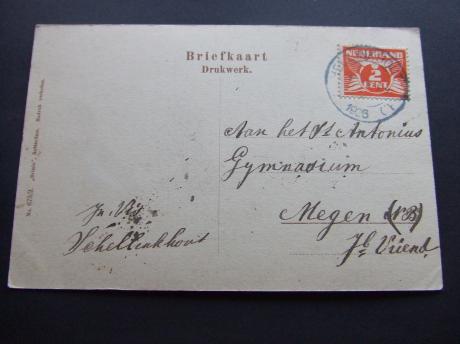 Briefkaart
Drukwerk.
NEDERLAND
2
CENT
1926
Aan het St Antonius
Gymnasium
Megen (NB)
Jn Vis
Schellinkhout
No. 673/2.